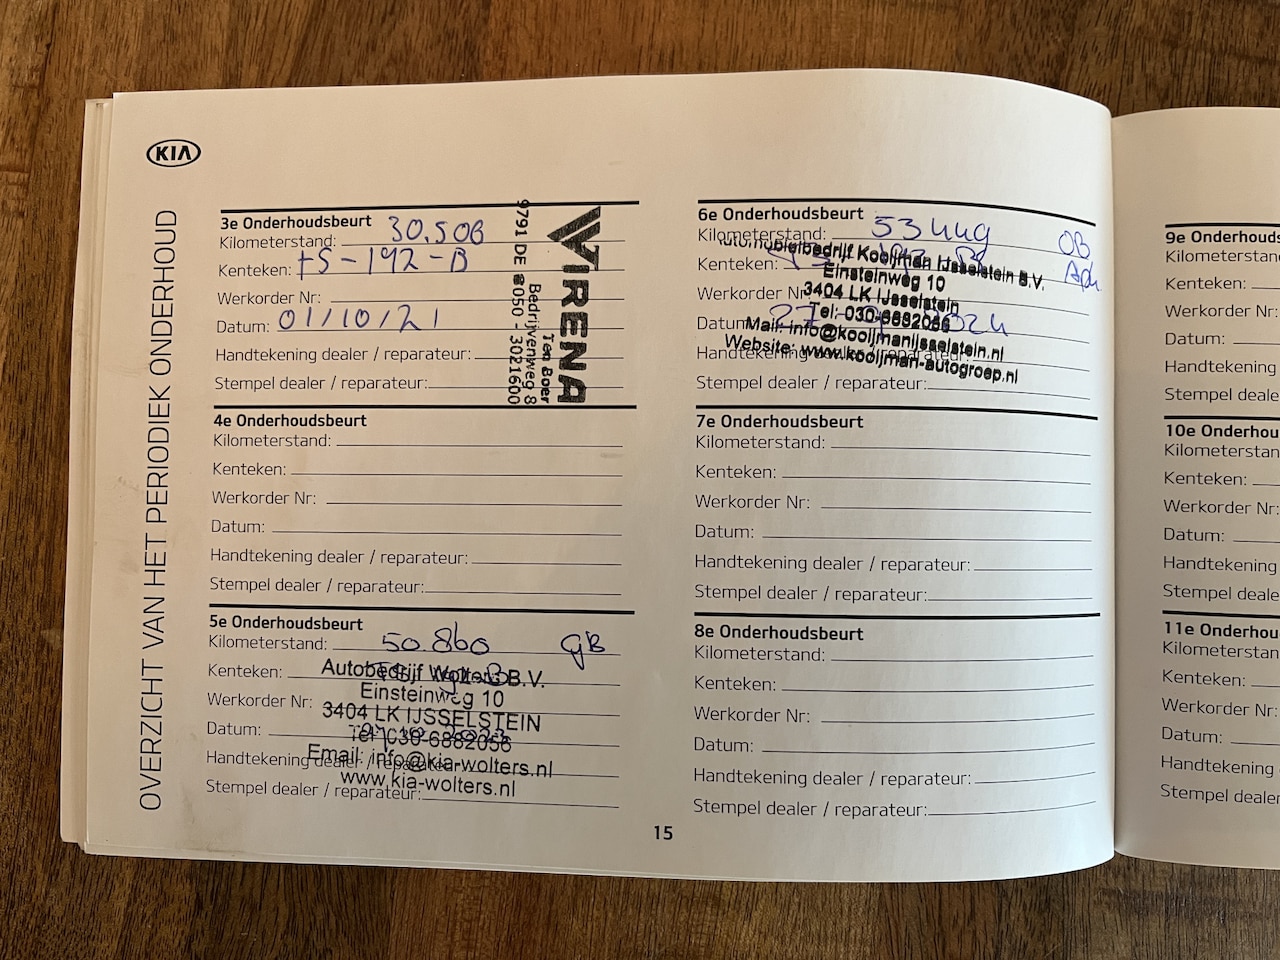 KIA
OVERZICHT VAN HET PERIODIEK ONDERHOUD
3e Onderhoudsbeurt
Kilometerstand: 30.506
Kenteken: TS-192-B
Werkorder Nr:
Datum: 01/10/21
Handtekening dealer / reparateur:
Stempel dealer / reparateur:
VIRENA
Ten Boer
Bedrijvenweg 8
9791 DE ☎050 - 3021600
4e Onderhoudsbeurt
Kilometerstand:
Kenteken:
Werkorder Nr:
Datum:
Handtekening dealer / reparateur:
Stempel dealer / reparateur:
5e Onderhoudsbeurt
Kilometerstand: 50.860 GB
Kenteken:
Werkorder Nr:
Datum:
Handtekening dealer / reparateur:
Stempel dealer / reparateur:
Autobedrijf Wolters B.V.
Einsteinweg 10
3404 LK IJSSELSTEIN
Tel 030-6882056
Email: info@kia-wolters.nl
www.kia-wolters.nl
6e Onderhoudsbeurt
Kilometerstand: 53449 OB
Kenteken:
Werkorder Nr:
Datum: 27 2024
Handtekening dealer / reparateur:
Stempel dealer / reparateur:
Automobielbedrijf Kooijman IJsselstein B.V.
Einsteinweg 10
3404 LK IJsselstein
Tel: 030-6882056
Mail: info@kooijmanijsselstein.nl
Website: www.kooijman-autogroep.nl
7e Onderhoudsbeurt
Kilometerstand:
Kenteken:
Werkorder Nr:
Datum:
Handtekening dealer / reparateur:
Stempel dealer / reparateur:
8e Onderhoudsbeurt
Kilometerstand:
Kenteken:
Werkorder Nr:
Datum:
Handtekening dealer / reparateur:
Stempel dealer / reparateur:
15
9e Onderhouds
Kilometerstan
Kenteken:
Werkorder Nr:
Datum:
Handtekening
Stempel deale
10e Onderhou
Kilometerstan
Kenteken:
Werkorder Nr:
Datum:
Handtekening
Stempel deale
11e Onderhou
Kilometerstan
Kenteken:
Werkorder Nr:
Datum:
Handtekening
Stempel dealer